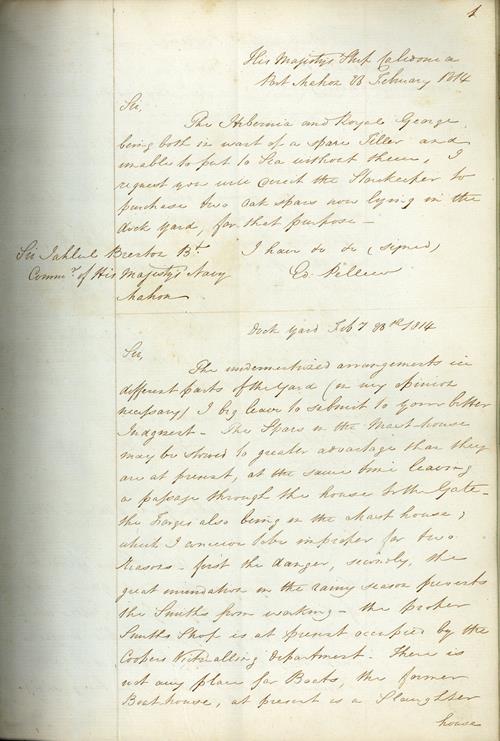 1
His Majesty's Ship Caledonia
Port Mahon 23 February 1814
Sir,
The Hibernia and Royal George
being both in want of a spare Tiller and
unable to put to Sea without them, I
request you will direct the Storekeeper to
purchase two Oak spars now lying in the
dock yard, for that purpose —
I have &c &c (signed)
Ed. Pellew
Sir Jahleel Brenton Bt.
Commr. of His Majestys Navy
Mahon
Dock Yard Feby 23rd 1814
Sir,
The undermentioned arrangements in
different parts of the Yard (in my opinion
necessary) I beg leave to submit to your better
Judgment — The Spars in the Mast-house
may be stowed to greater advantage than they
are at present, at the same time leaving
a passage through the house to the Gate —
the Forges also being in the Mast house,
which I conceive to be improper for two
reasons — first the danger, secondly, the
great inundation in the rainy season prevents
the Smiths from working — the proper
Smiths Shop is at present occupied by the
Coopers Victualling department. There is
not any place for Boats, the former
Boathouse, at present is a Slaughter
house